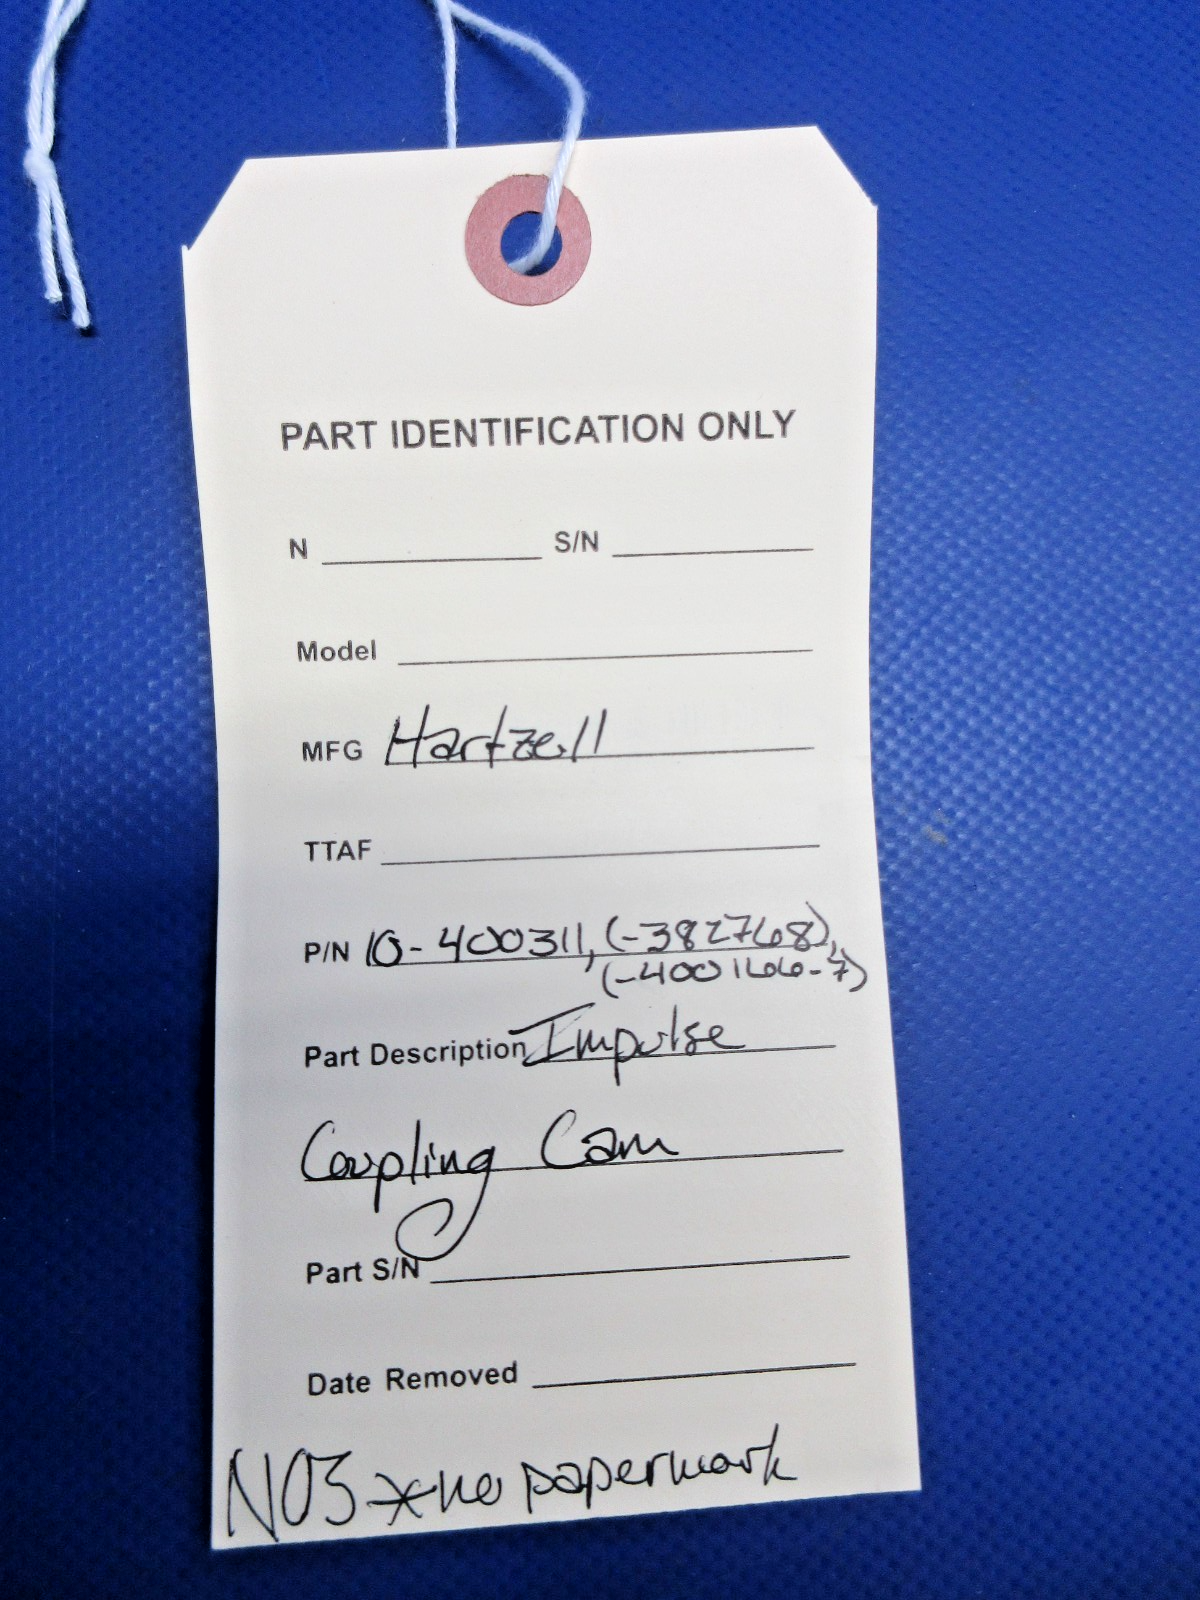 PART IDENTIFICATION ONLY
N S/N
Model
MFG Hartzell
TTAF
P/N 10-400311, (-382768),
(-400166-7)
Part Description Impulse
Coupling Cam
Part S/N
Date Removed
NOS *no paperwork